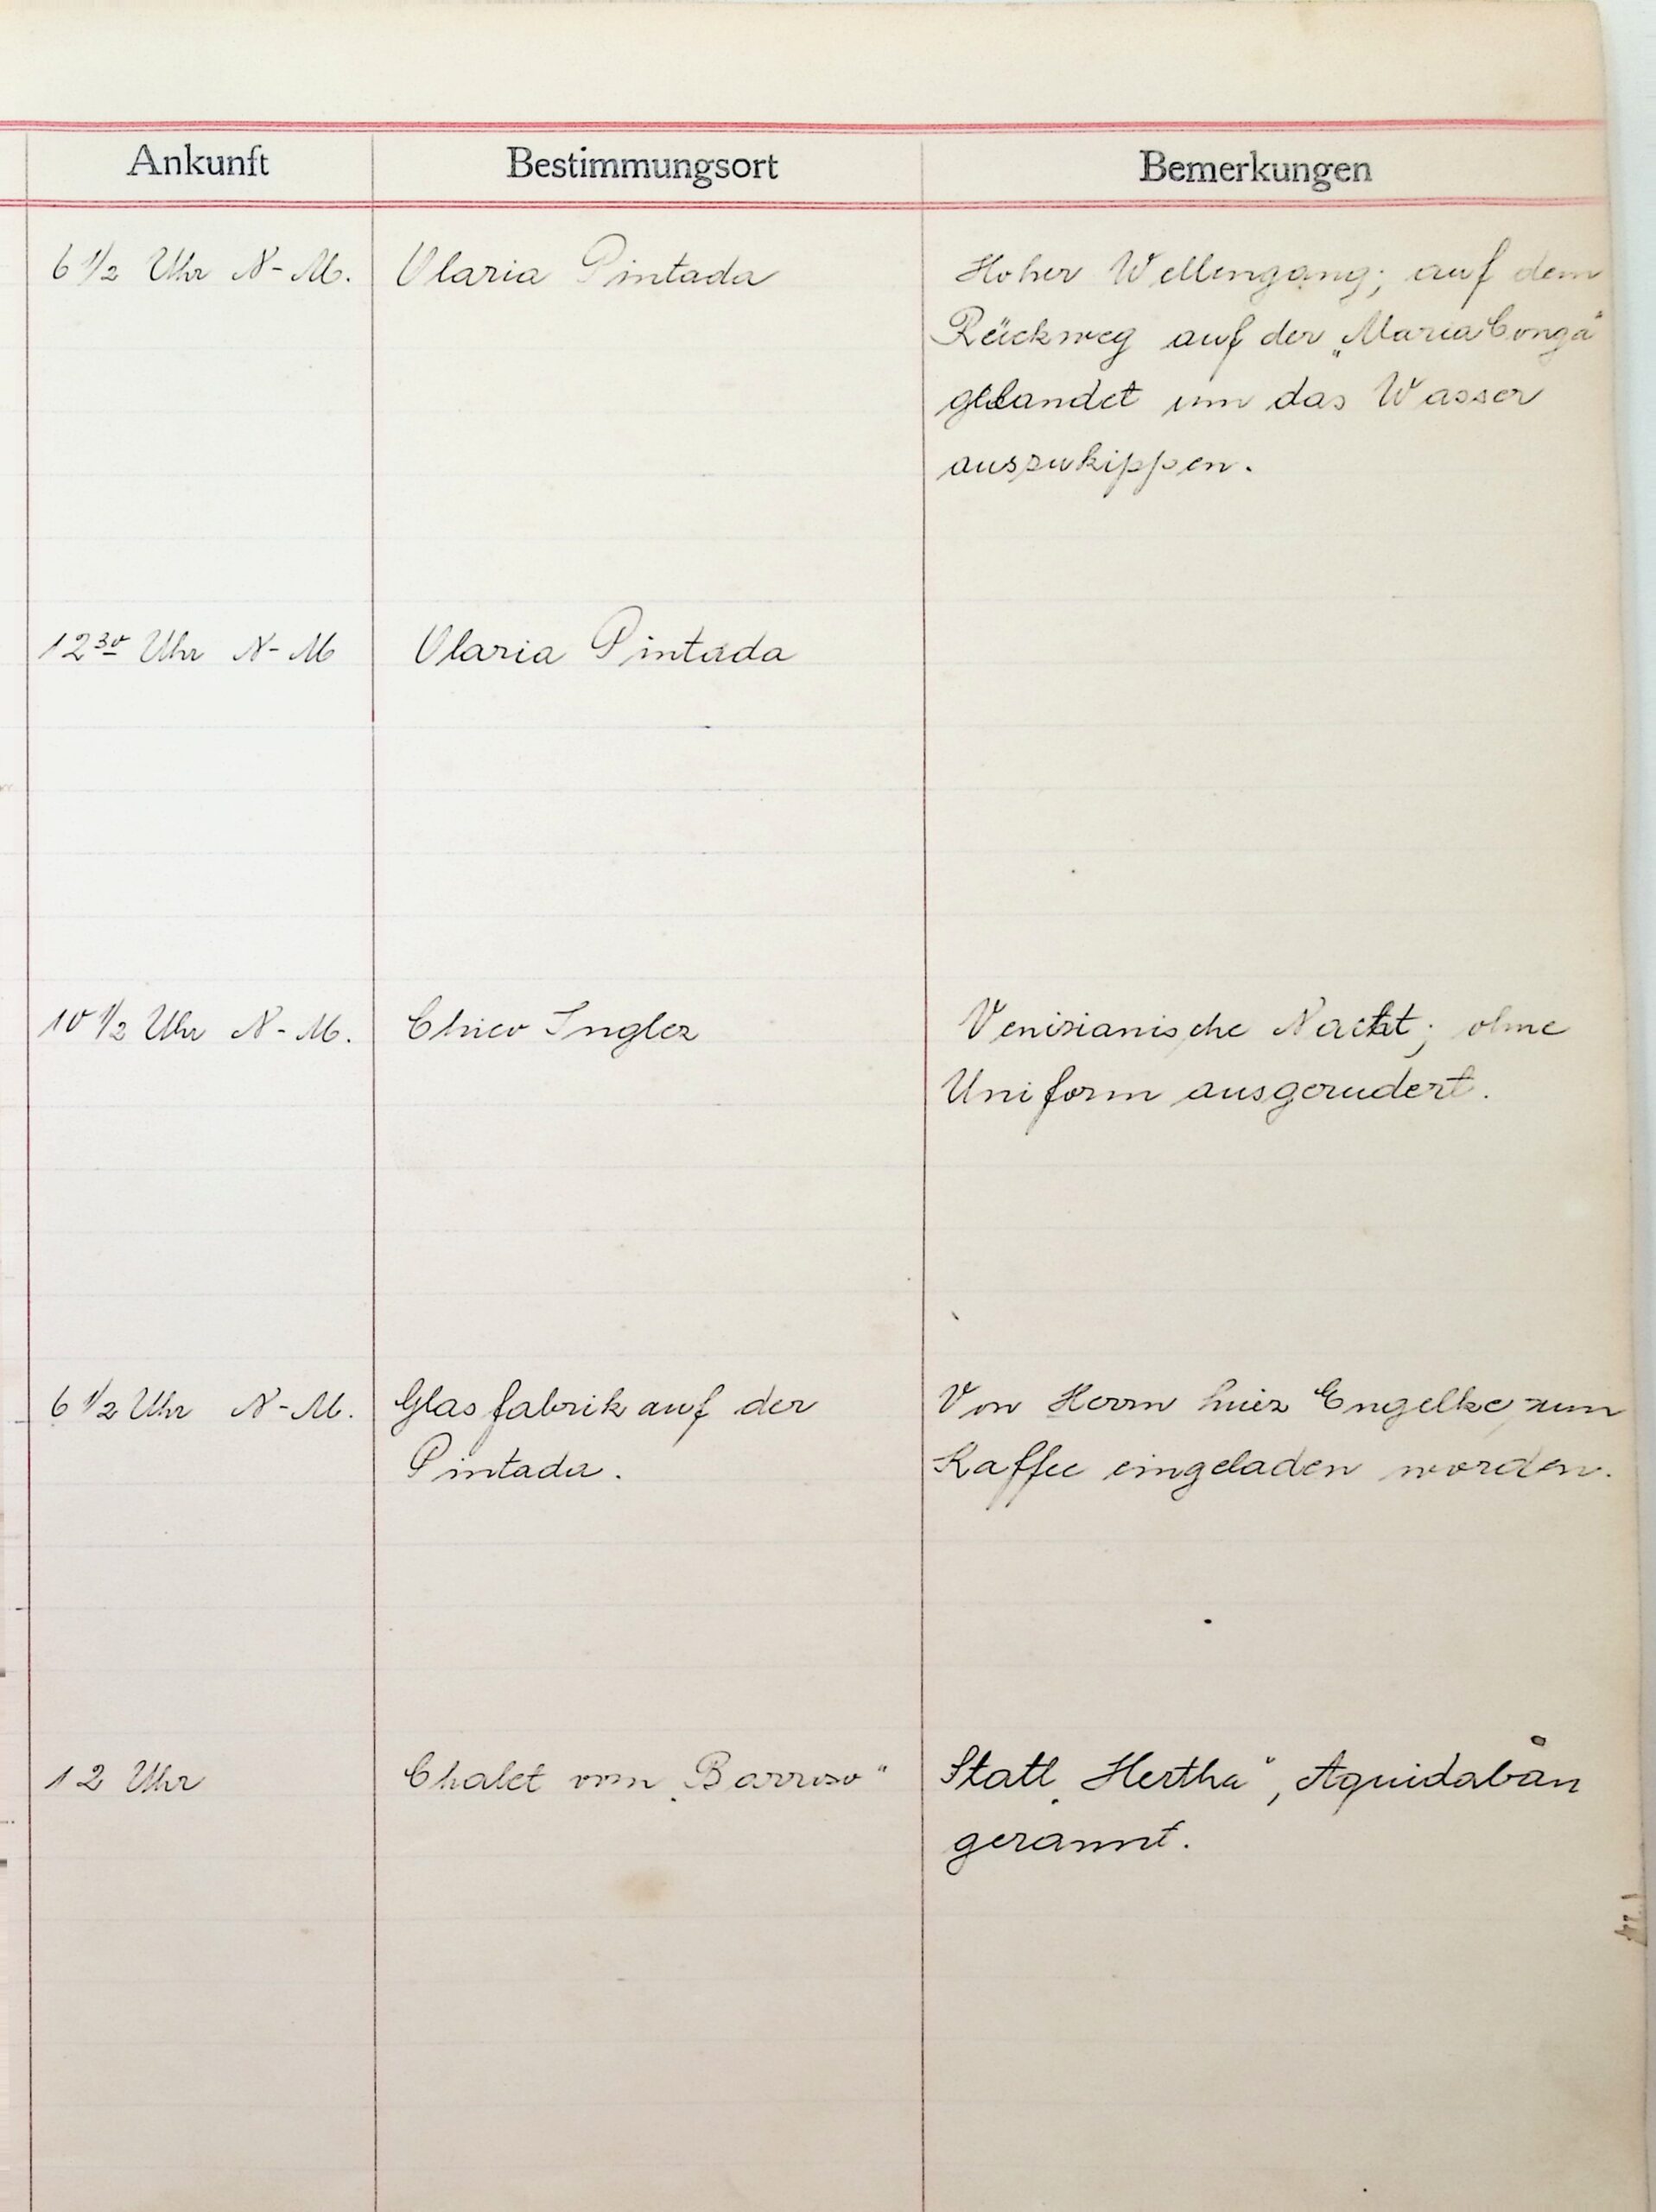 Ankunft Bestimmungsort Bemerkungen
6 1/2 Uhr N-M. Olaria Pintada Hoher Wellengang; auf dem
Rückweg auf der „Maria Conga"
gelandet um das Wasser
auszukippen.
12 30 Uhr N-M Olaria Pintada
10 1/2 Uhr N-M. Chico Inglez Venizianische Nacht; ohne
Uniform ausgerudert.
6 1/2 Uhr N-M. Glasfabrik auf der Von Herrn Luiz Engelke zum
Pintada. Kaffee eingeladen worden.
12 Uhr Chalet vom „Barroso" Statt „Hertha", Aquidabán
gerannt.